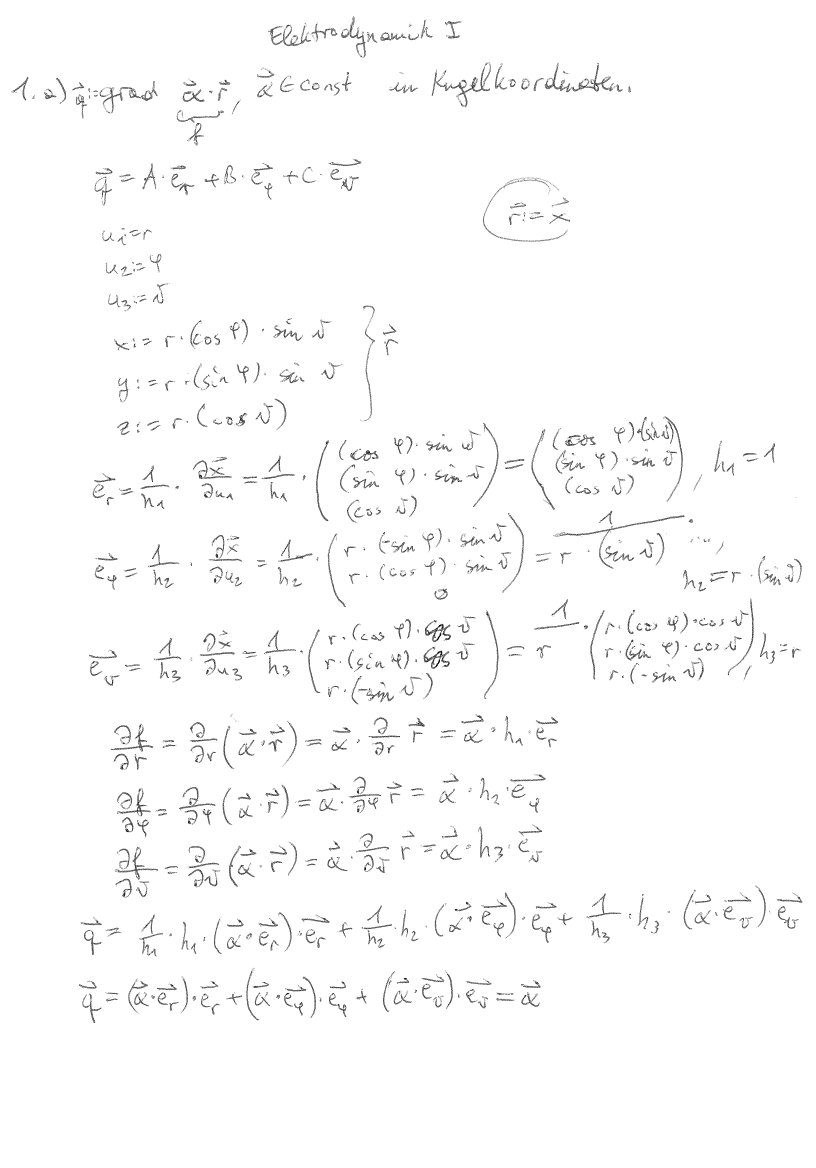 Elektrodynamik I
1. a) q⃗ := grad α⃗·r⃗, α⃗ ∈ const in Kugelkoordinaten.
f
q⃗ = A·e⃗_r + B·e⃗_φ + C·e⃗_ϑ
r⃗ := x⃗
u₁ := r
u₂ := φ
u₃ := ϑ
x := r·(cos φ)·sin ϑ
y := r·(sin φ)·sin ϑ } r⃗
z := r·(cos ϑ)
e⃗_r = 1/h₁ · ∂x⃗/∂u₁ = 1/h₁ · ((cos φ)·sin ϑ, (sin φ)·sin ϑ, (cos ϑ)) = ((cos φ)·(sin ϑ), (sin φ)·sin ϑ, (cos ϑ)), h₁ = 1
e⃗_φ = 1/h₂ · ∂x⃗/∂u₂ = 1/h₂ · (r·(-sin φ)·sin ϑ, r·(cos φ)·sin ϑ, 0) = 1/(r·(sin ϑ)) · ..., h₂ = r·(sin ϑ)
e⃗_ϑ = 1/h₃ · ∂x⃗/∂u₃ = 1/h₃ · (r·(cos φ)·cos ϑ, r·(sin φ)·cos ϑ, r·(-sin ϑ)) = 1/r · (r·(cos φ)·cos ϑ, r·(sin φ)·cos ϑ, r·(-sin ϑ)), h₃ = r
∂f/∂r = ∂/∂r (α⃗·r⃗) = α⃗ · ∂/∂r r⃗ = α⃗·h₁·e⃗_r
∂f/∂φ = ∂/∂φ (α⃗·r⃗) = α⃗ · ∂/∂φ r⃗ = α⃗·h₂·e⃗_φ
∂f/∂ϑ = ∂/∂ϑ (α⃗·r⃗) = α⃗ · ∂/∂ϑ r⃗ = α⃗·h₃·e⃗_ϑ
q⃗ = 1/h₁ · h₁·(α⃗·e⃗_r)·e⃗_r + 1/h₂ · h₂·(α⃗·e⃗_φ)·e⃗_φ + 1/h₃ · h₃·(α⃗·e⃗_ϑ)·e⃗_ϑ
q⃗ = (α⃗·e⃗_r)·e⃗_r + (α⃗·e⃗_φ)·e⃗_φ + (α⃗·e⃗_ϑ)·e⃗_ϑ = α⃗